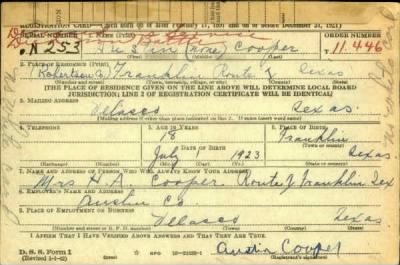 REGISTRATION CARD—(Men born on or after February 17, 1897 and on or before December 31, 1921)
SERIAL NUMBER ORDER NUMBER
N 253 Austin (none) Cooper 11,446
2. PLACE OF RESIDENCE (Print)
Robertson Co, Franklin Route Texas
(THE PLACE OF RESIDENCE GIVEN ON THE LINE ABOVE WILL DETERMINE LOCAL BOARD
JURISDICTION; LINE 2 OF REGISTRATION CERTIFICATE WILL BE IDENTICAL)
3. MAILING ADDRESS
Velasco Texas
(Mailing address if other than place indicated on line 2. If same insert word same)
4. TELEPHONE 5. AGE IN YEARS 6. PLACE OF BIRTH
18 Franklin
DATE OF BIRTH
July 1923 Texas
7. NAME AND ADDRESS OF PERSON WHO WILL ALWAYS KNOW YOUR ADDRESS
Mrs Cooper Route Franklin Tex
8. EMPLOYER'S NAME AND ADDRESS
Austin Co
9. PLACE OF EMPLOYMENT OR BUSINESS
Velasco Texas
I AFFIRM THAT I HAVE VERIFIED ABOVE ANSWERS AND THAT THEY ARE TRUE.
D. S. S. Form 1
(Revised 1-1-42) GPO Austin Cooper